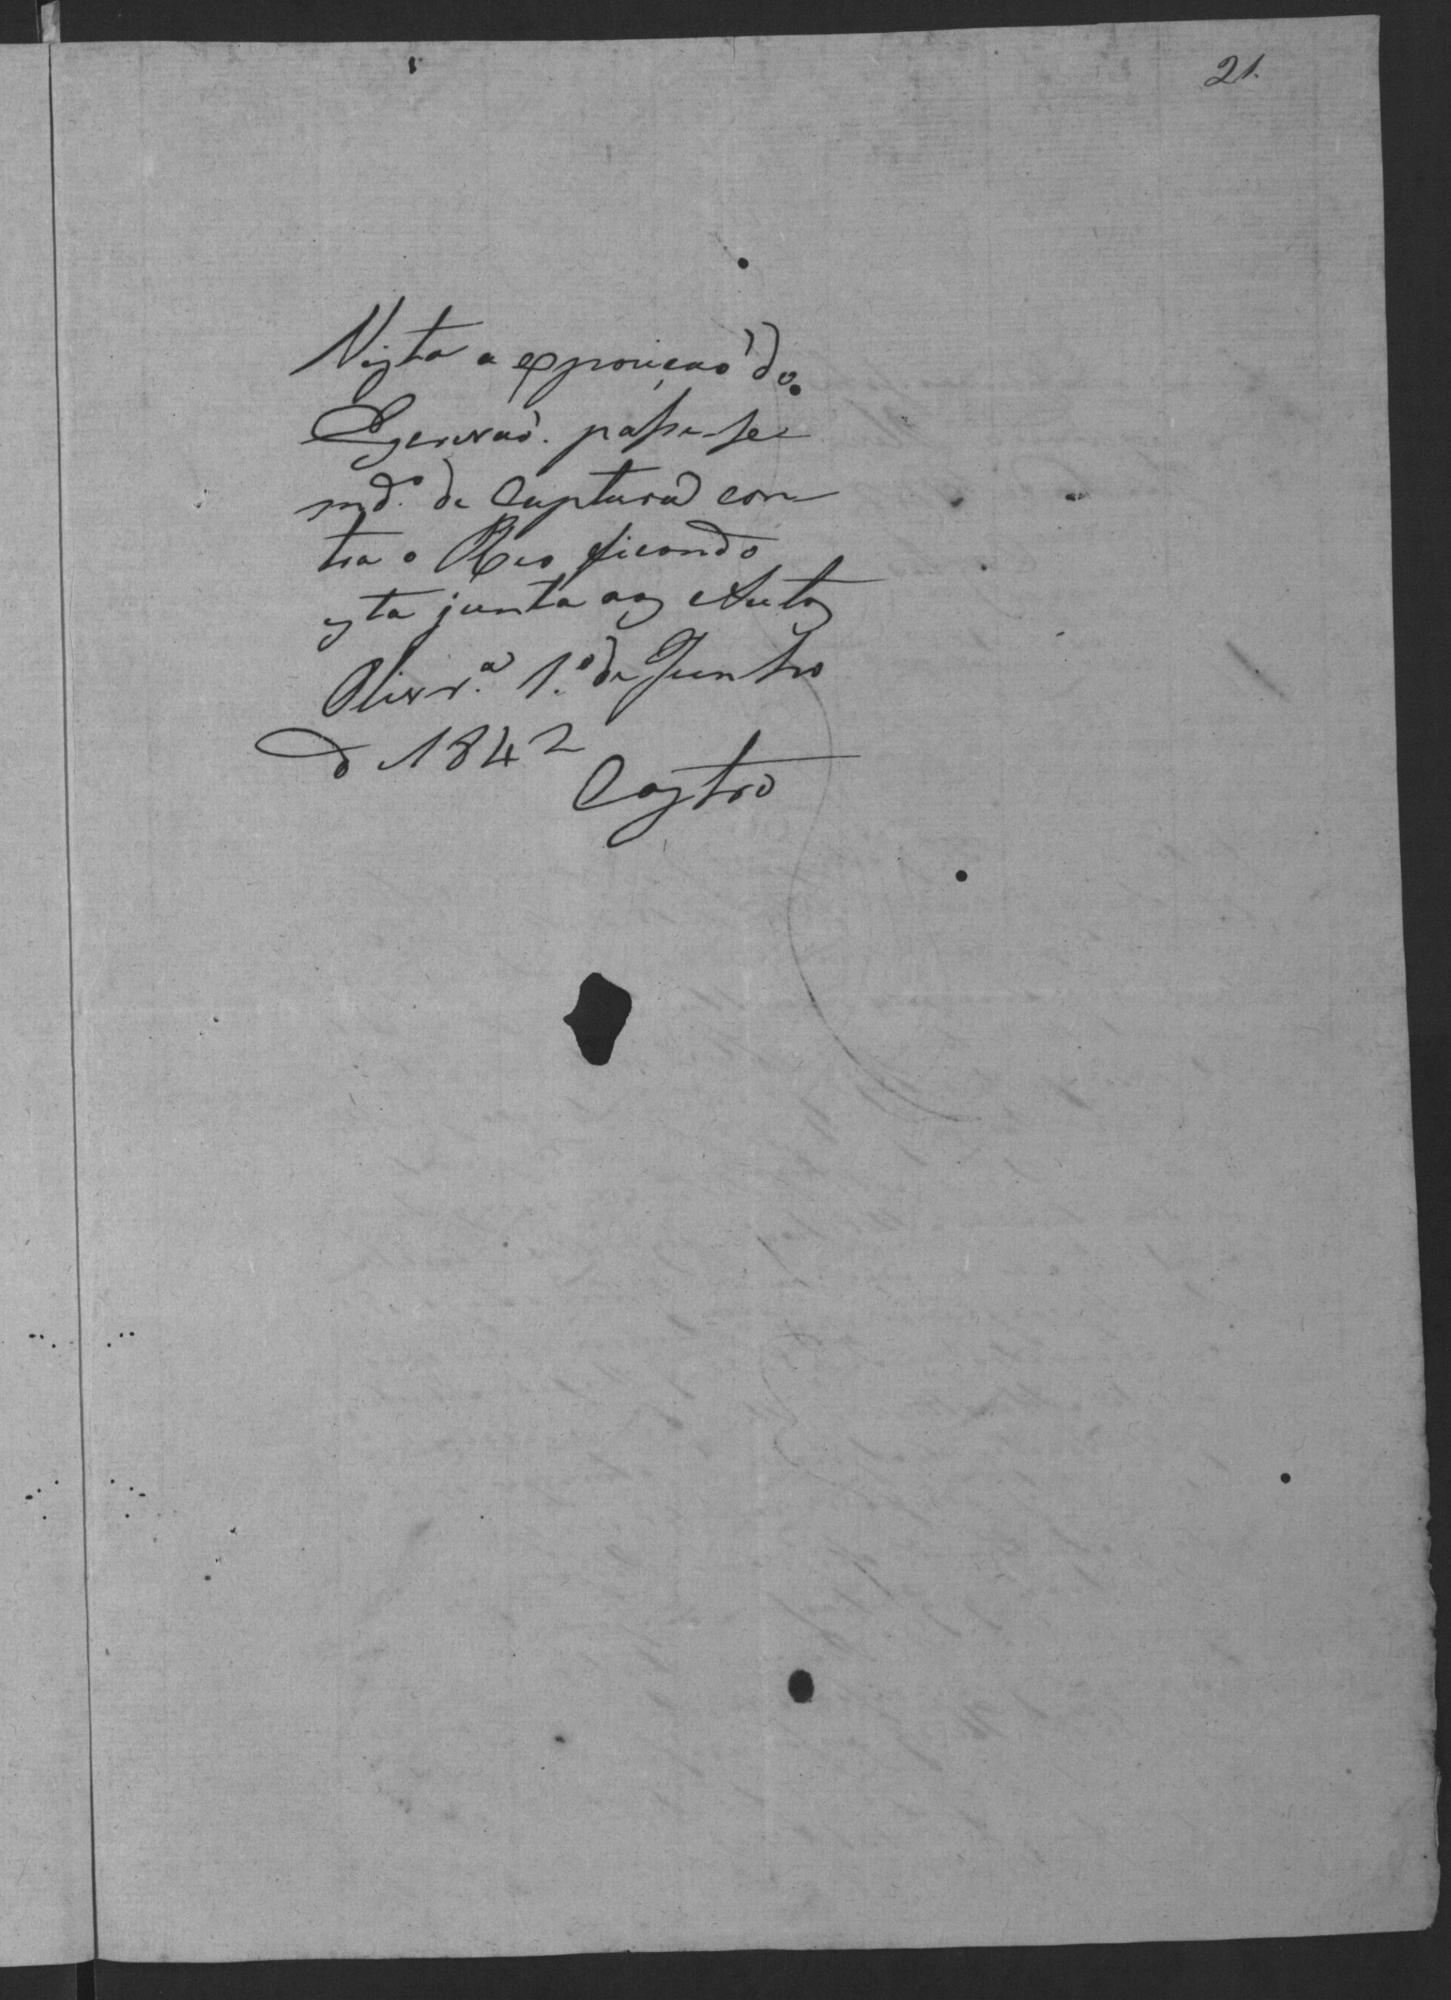 21.
Vista a exposição do
Escrivaõ. passe-se
md.º de Captura con-
tra o Reo ficando
esta junta aos Autos
Olivr.ª 1.º de Junho
de 1842
Castro